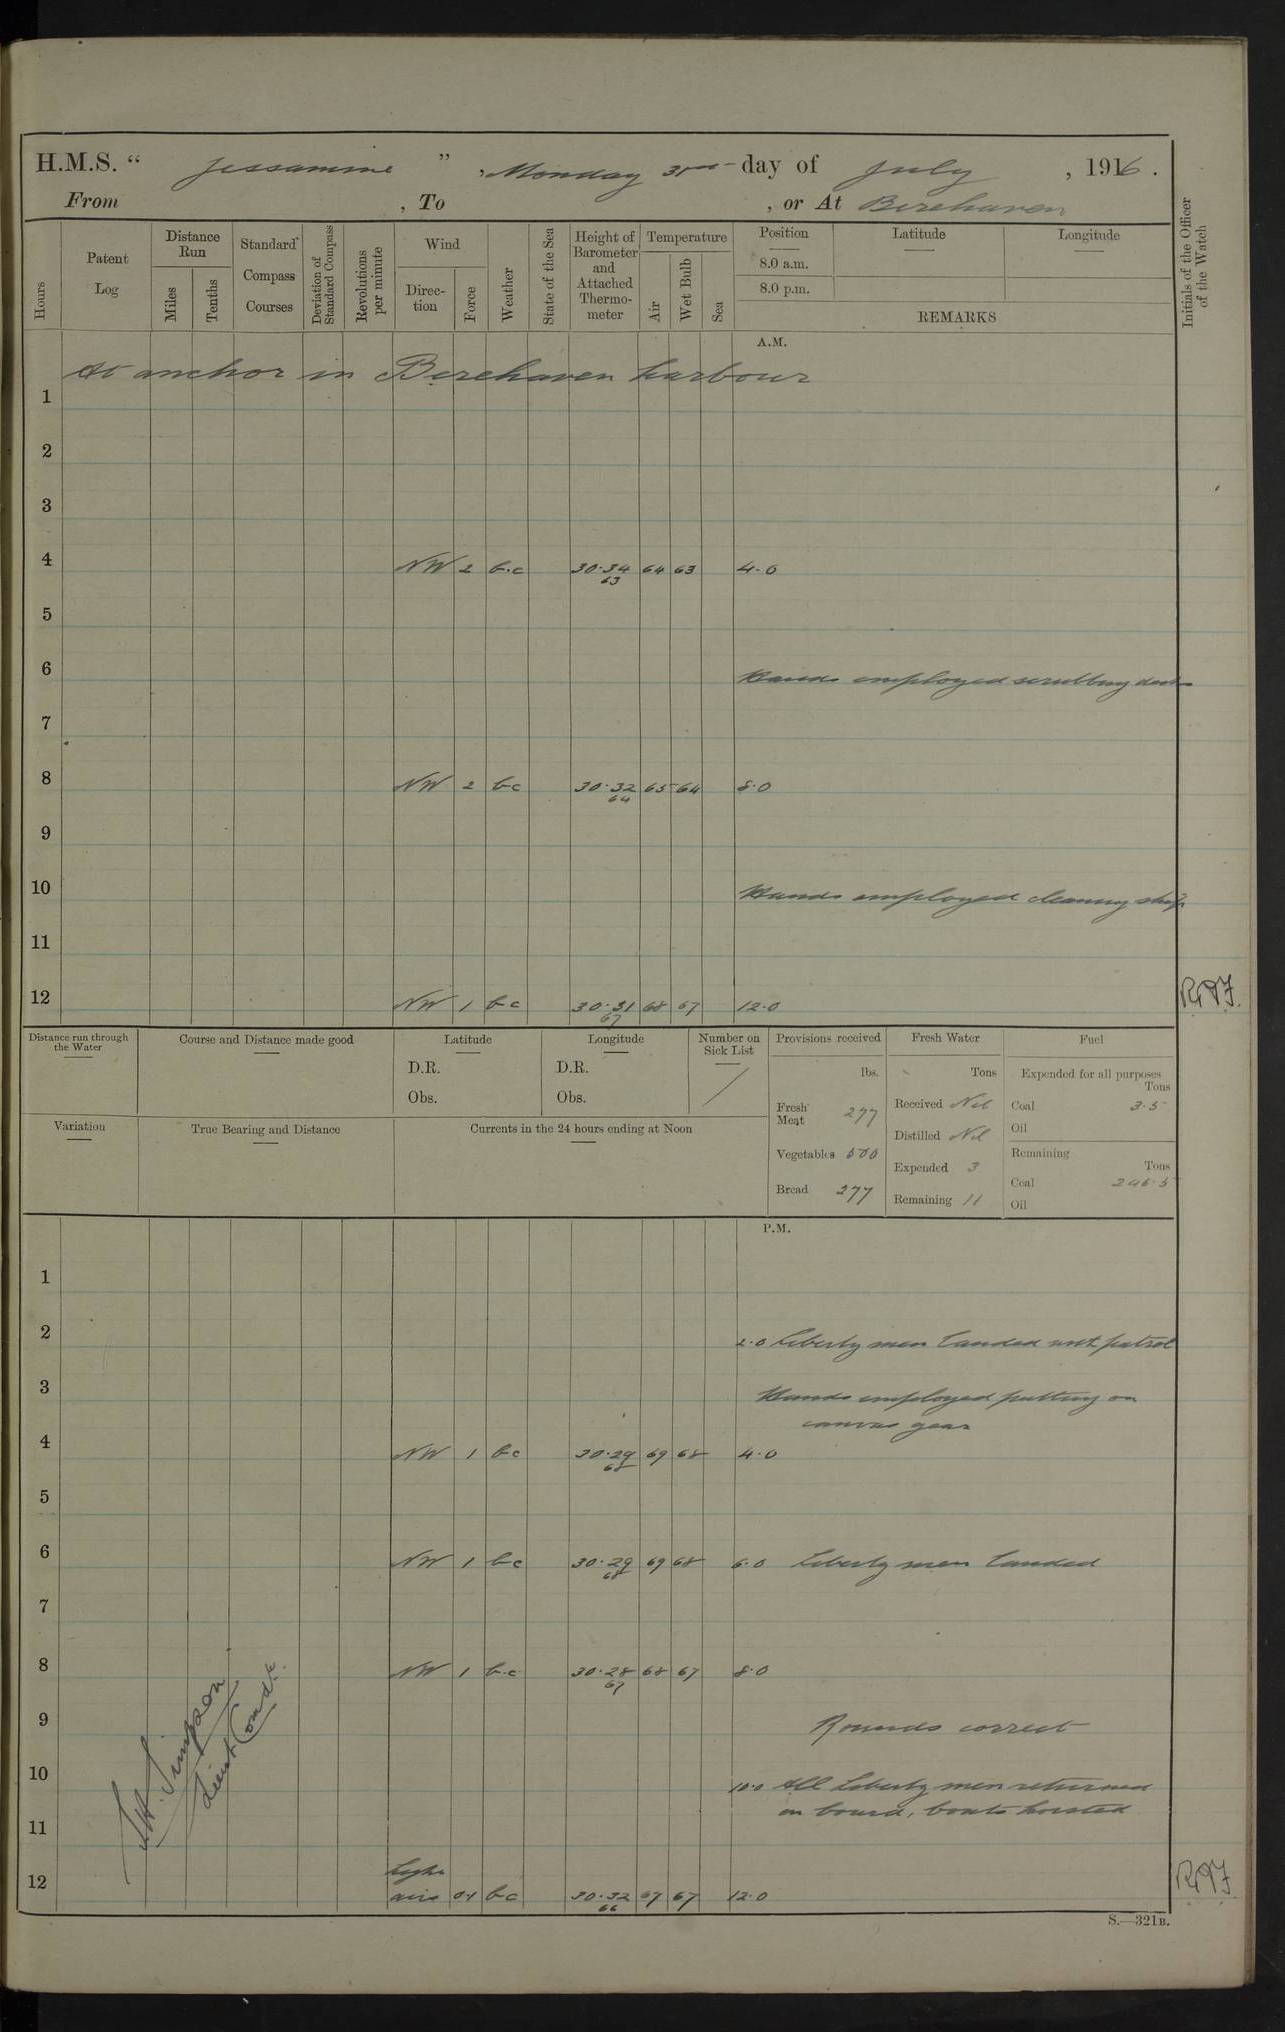 H.M.S. “ Jessamine ” , Monday 31st day of July , 1916 .
From , To , or At Berehaven
Hours
Patent Log
Distance Run
Miles
Tenths
Standard Compass Courses
Deviation of Standard Compass
Revolutions per minute
Wind
Direction
Force
Weather
State of the Sea
Height of Barometer and Attached Thermometer
Temperature
Air
Wet Bulb
Sea
Position
8.0 a.m.
8.0 p.m.
Latitude
Longitude
REMARKS
Initials of the Officer of the Watch
A.M.
At anchor in Berehaven harbour
1
2
3
4 NW 2 b.c 30.34 64 63 4.0
63
5
6 Hands employed scrubbing decks
7
8 NW 2 bc 30.32 65 64 8.0
64
9
10 Hands employed cleaning ship
11
12 NW 1 bc 30.31 68 67 12.0
67
Distance run through the Water
Course and Distance made good
Latitude
D.R.
Obs.
Longitude
D.R.
Obs.
Number on Sick List
/
Provisions received
lbs.
Fresh Meat 277
Vegetables 500
Bread 277
Fresh Water
Tons
Received Nil
Distilled Nil
Expended 3
Remaining 11
Fuel
Expended for all purposes
Tons
Coal 3.5
Oil
Remaining
Tons
Coal 246.5
Oil
Variation
True Bearing and Distance
Currents in the 24 hours ending at Noon
P.M.
1
2 2.0 Liberty men landed with patrol
3 Hands employed putting on
canvas gear
4 NW 1 bc 30.29 69 68 4.0
68
5
6 NW 1 bc 30.29 69 68 6.0 Liberty men landed
68
7
8 NW 1 b.c 30.28 68 67 8.0
67
9 Rounds correct
10 10.0 All liberty men returned
on board, boats hoisted
11
Light
12 airs 0.1 bc 30.32 67 67 12.0
66
Simpson
Lieut Comdr.
S.—321B.